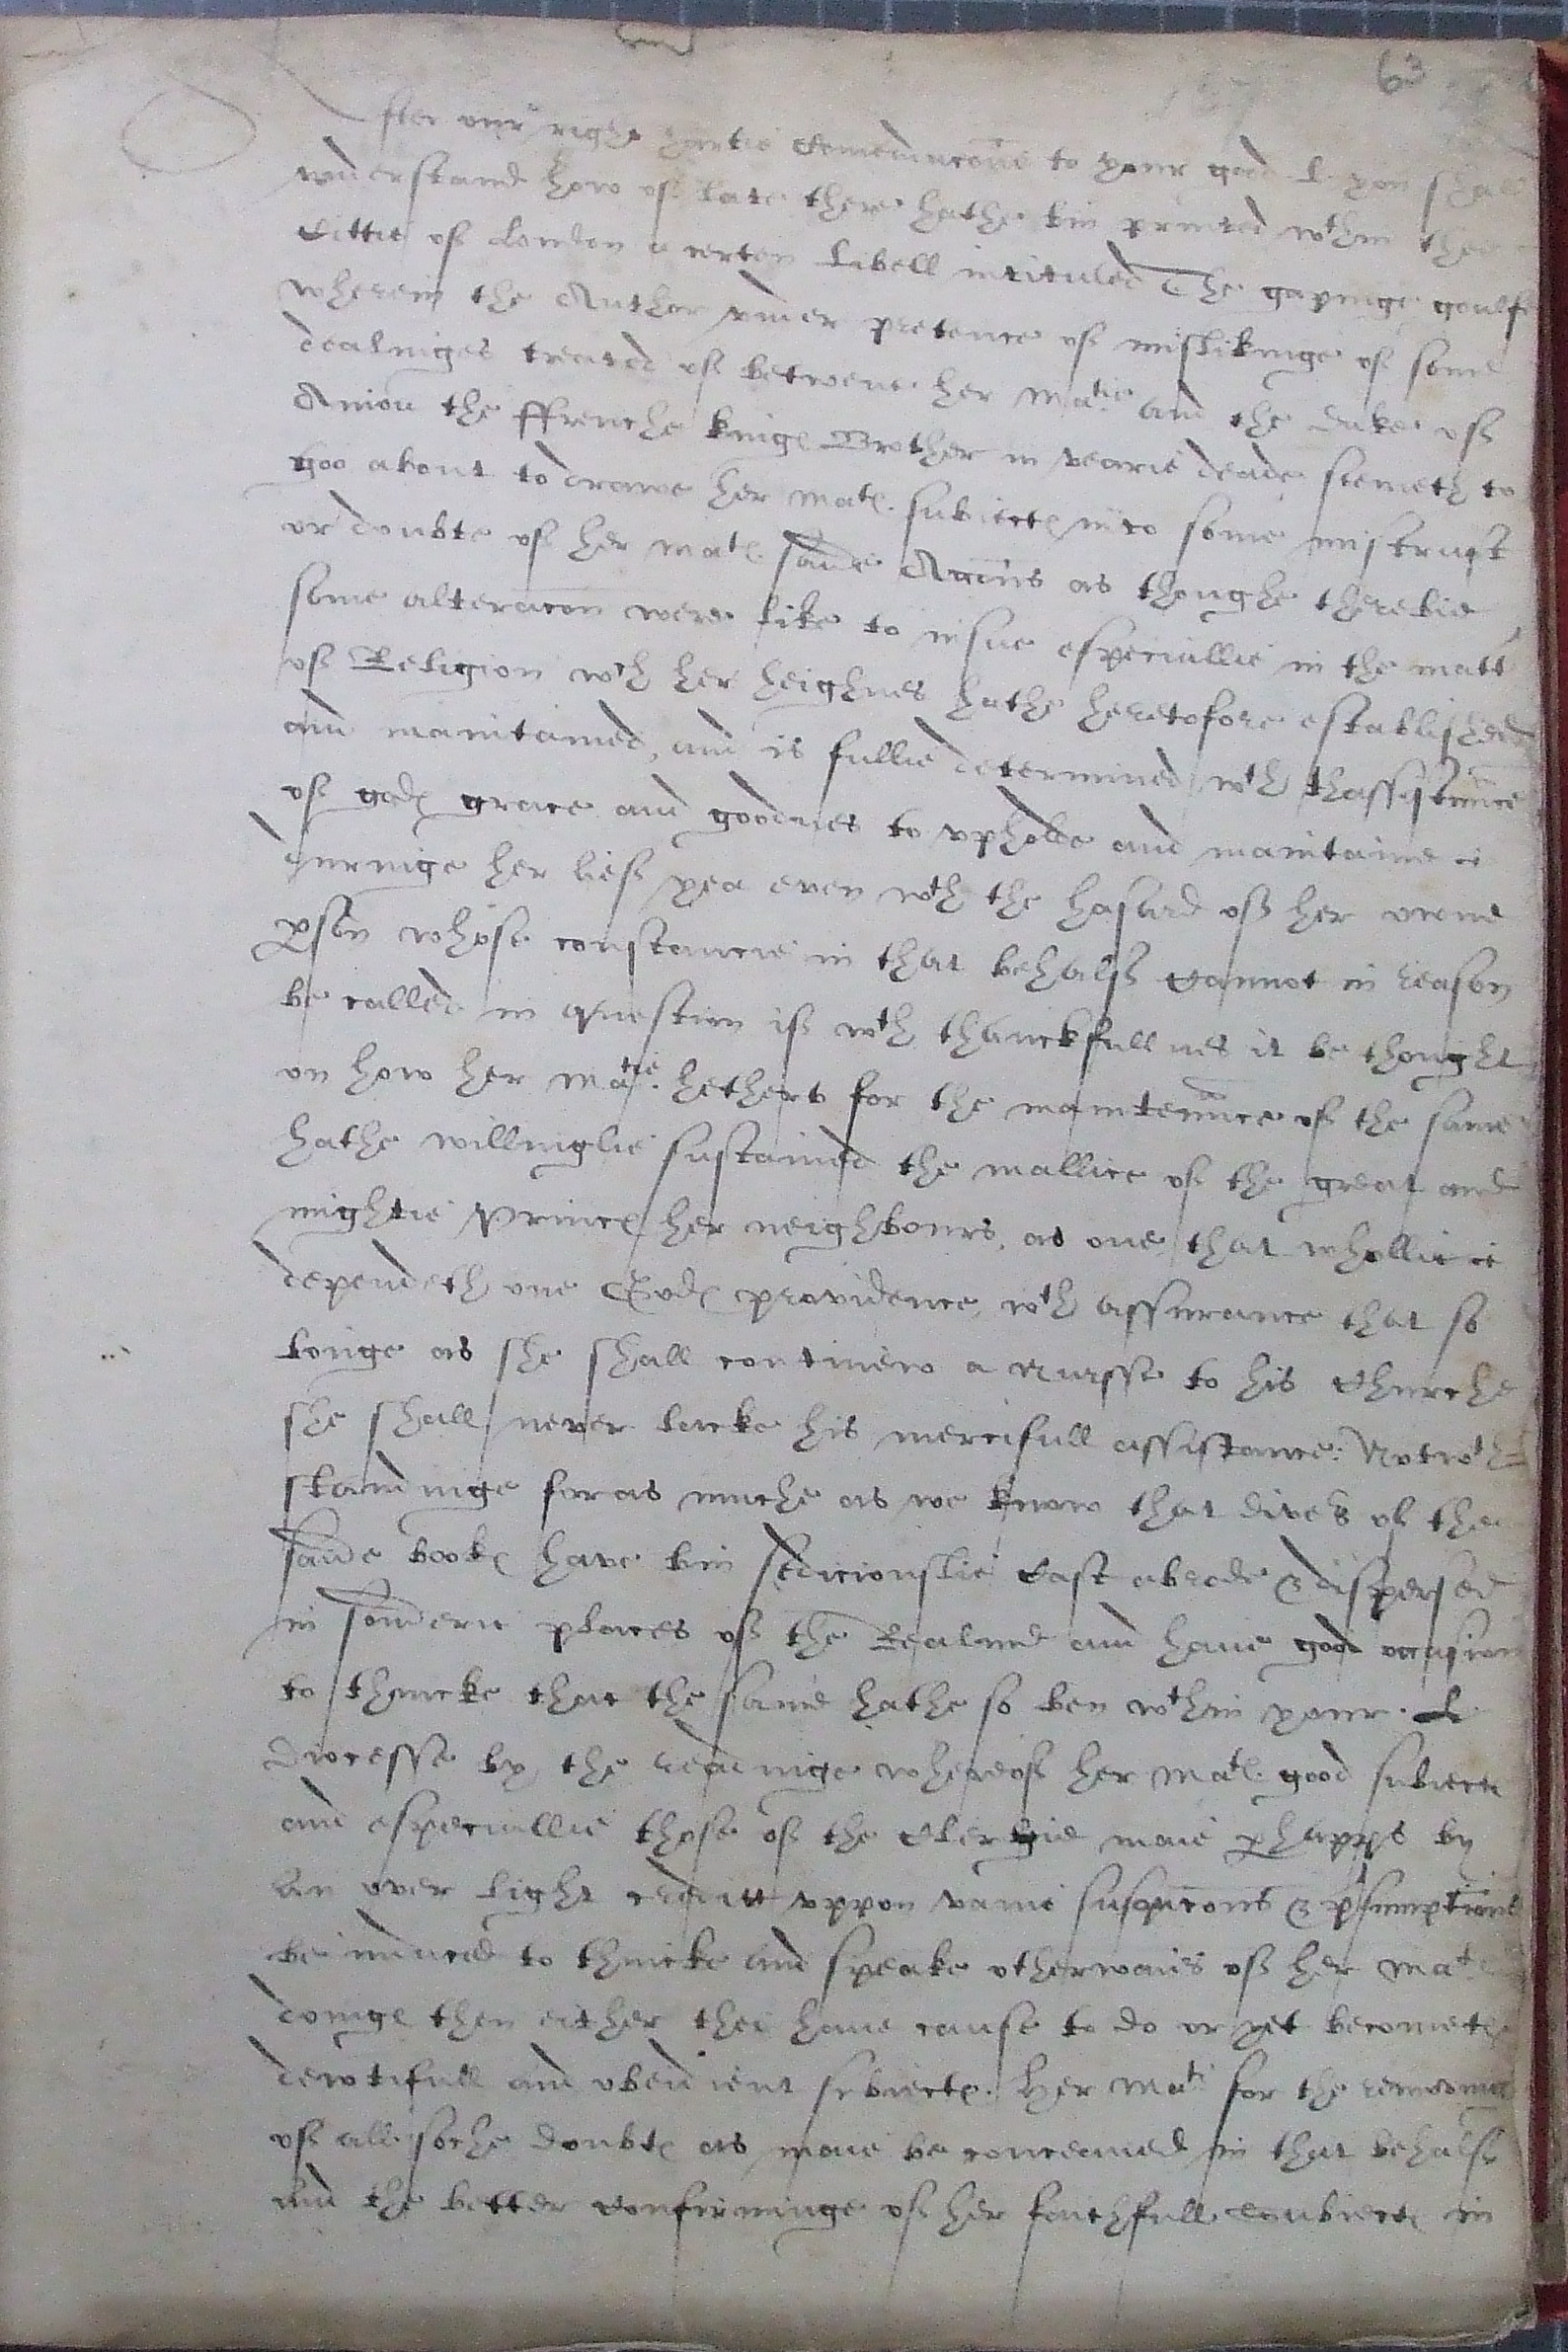 63
After our right hartie Comendacons to your good L. you shall
understand how of late there hathe bin printed wthin the
Cittie of London a certen Libell intituled The gapinge goulfe
wherein the Author under pretence of mislikinge of some
dealinges treated of betwene her Matie and the Duke of
Aniou the ffrenche kinges Brother in vearie deade seemeth to
goo about to drawe her Mates subiectes into some mistrust
or doubte of her Mates saide Accons as thoughe therebie
some alteracon were like to insue especiallie in the matter
of Religion wch her heighnes hathe heretofore established
and maintained, and is fullie determined wth thassistance
of godes grace and goodnes to upholde and maintaine
duringe her lief yea even wth the hasard of her owne
pson whose constancie in that behalf Cannot in reason
be called in question if wth thanckfullnes it be thought
on how her Matie hetherto for the maintenance of the same
hathe willinglie sustained the mallice of the great and
mightie Princes her neighbours, as one that whollie
dependeth one Godes providence, wth assurance that so
longe as she shall continew a Nursse to his Churche
she shall never lacke his mercifull assistance: Notwth=
standinge foras muche as we know that divers of the
saide bookes have bin sediciouslie Cast abrode & dispersed
in sonderie places of the Realme and have good occasion
to thincke that the same hathe so ben wthin your L
Diocesse by the readinge whereof her Mates good subiectes
and especiallie those of the Clergie maie phapps by
an over light creditt uppon vaine suspicons & psumptions
be induced to thincke and speake otherwaies of her Mates
doinges then either thei have cause to do or yet becometh
dewtifull and obedient subiectes. Her Matie for the removinge
of all soche doubtes as maie be conceaved in that behalf
and the better Confirminge of her faithfull soubiectes in